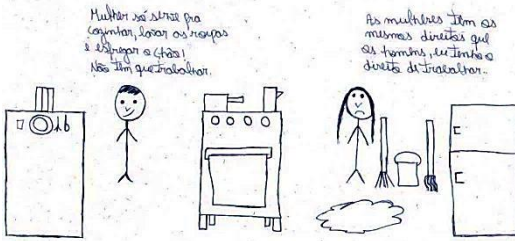 Mulher só serve pra
cozinhar, lavar as roupas
e esfregar o chão!
Não tem que trabalhar.
As mulheres têm os
mesmos direitos que
os homens, eu tenho o
direito de trabalhar.